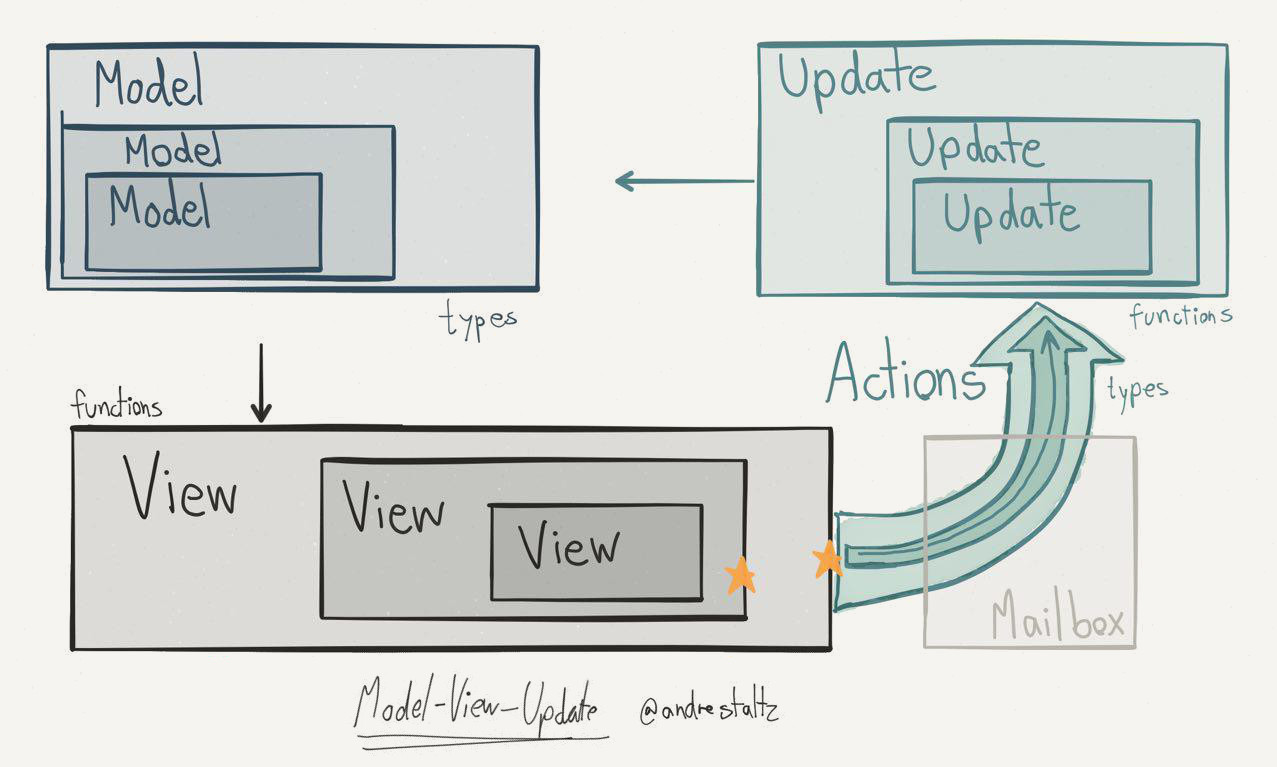 Model
Model
Model
types
Update
Update
Update
functions
Actions
types
functions
View
View
View
Mailbox
Model-View-Update
@andrestaltz